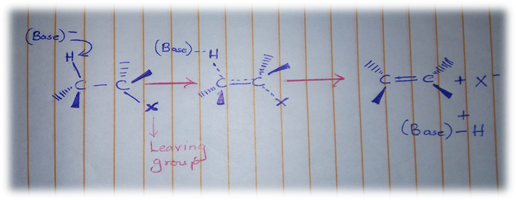 (Base)−
H
C − C
X
Leaving
group
(Base)---H
C C
X
C = C + X⁻
(Base)−H
+